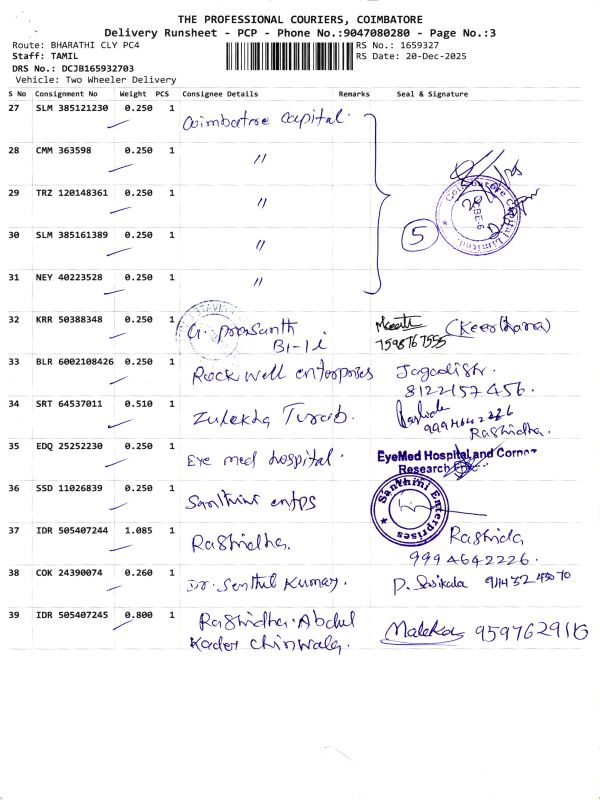 THE PROFESSIONAL COURIERS, COIMBATORE
Delivery Runsheet - PCP - Phone No.:9047080280 - Page No.:3
Route: BHARATHI CLY PC4 RS No.: 1659327
Staff: TAMIL RS Date: 20-Dec-2025
DRS No.: DCJB165932703
Vehicle: Two Wheeler Delivery
S No Consignment No Weight PCS Consignee Details Remarks Seal & Signature
27 SLM 385121230 0.250 1 Coimbatore capital.
28 CMM 363598 0.250 1 〃
29 TRZ 120148361 0.250 1 〃
30 SLM 385161389 0.250 1 〃 5
31 NEY 40223528 0.250 1 〃
32 KRR 50388348 0.250 1 G. Prasanth (Keerthana)
B1-1i 7598767555
33 BLR 6002108426 0.250 1 Rockwell enterprises Jagadish.
8122157456.
34 SRT 64537011 0.510 1 Zulekha Turab. Rashida
9994642226
Rashidha.
35 EDQ 25252230 0.250 1 Eye med hospital. EyeMed Hospital and Cornea
Research
36 SSD 11026839 0.250 1 Santhini entps Santhini Enterprises
37 IDR 505407244 1.085 1 Rashidha. Rashida
9994642226.
38 COK 24390074 0.260 1 Dr. Senthil Kumar. P. Sasikala
39 IDR 505407245 0.800 1 Rashidha. Abdul Maleka 9597629116
Kader Chinwala.